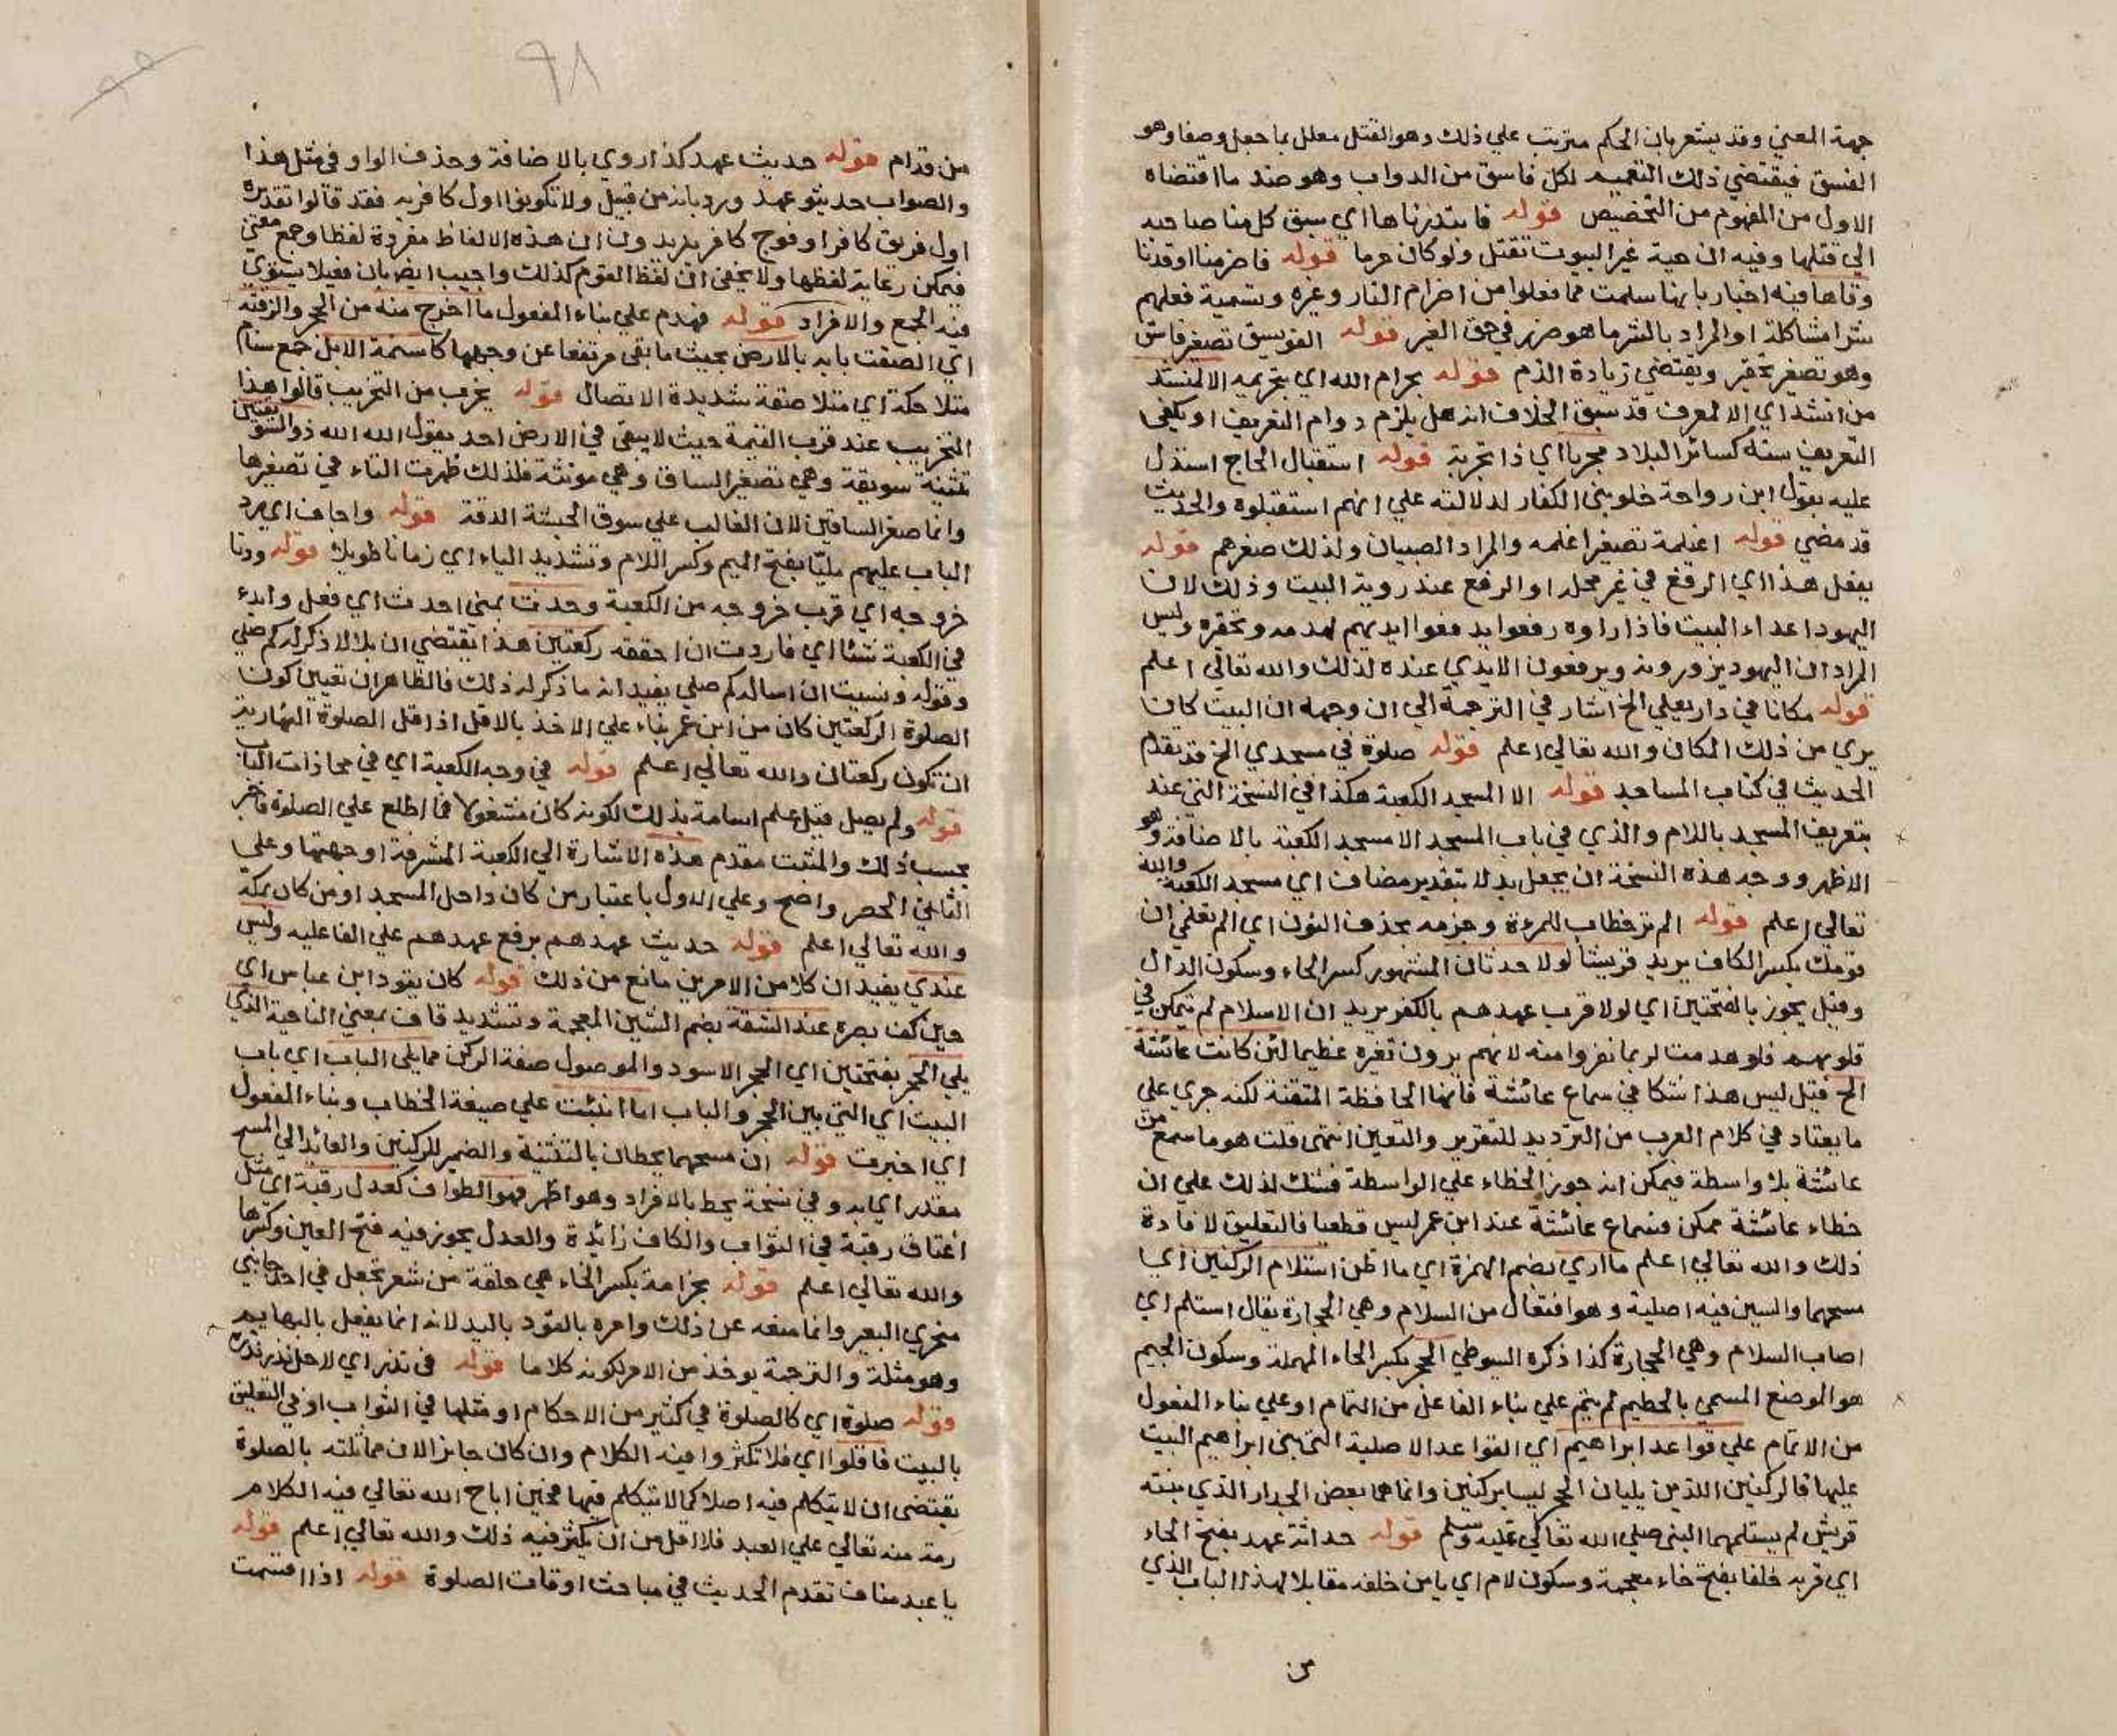 جهة المعني وقد يشعر بان الحكم مترتب علي ذلك وهو القتل معلل بما جعل وصفا وهو
الفسق فيقتضي ذلك التعميم لكل فاسق من الدواب وهو ضد ما اقتضاه
الاول من المفهوم من التخصيص قوله فابتدرناها اي سبق كل منا صاحبه
الي قتلها وفيه ان حية غير البيوت تقتل ولو كان حرما قوله فاضرمنا اوقدنا
وقاها فيه اخبار بانها سلمت مما فعلوا من اضرام النار وغيره وتسمية فعلهم
شرا مشاكلة او المراد بالشر ما هو ضرر في حق الغير قوله الفويسق تصغير فاسق
وهو تصغير تحقير ويقتضي زيادة الذم قوله بحرام الله اي بتحريمه الا لمنشد
من انشد اي الا لمعرف قد سبق الخلاف انه هل يلزم دوام التعريف او يكفي
التعريف سنة كسائر البلاد مجربا اي ذا تجربة قوله استقبال الحاج استدل
عليه بقول ابن رواحة خلو بني الكفار لدلالته علي انهم استقبلوه والحديث
قد مضي قوله اغيلمة تصغير اغلمه والمراد الصبيان ولذلك صغرهم قوله
يفعل هذا اي الرفع في غير محله او الرفع عند روية البيت وذلك لان
اليهود اعداء البيت فاذا راوه رفعوا ايديهم لهدمه وتحقيره وليس
المراد ان اليهود يزورونه ويرفعون الايدي عنده لذلك والله تعالي اعلم
قوله مكانا في دار يعلي الخ اشار في الترجمة الي ان وجهه ان البيت كان
يري من ذلك المكان والله تعالي اعلم قوله صلوة في مسجدي الخ قد تقدم
الحديث في كتاب المساجد قوله الا المسجد الكعبة هكذا في النسخة التي عند
بتعريف المسجد باللام والذي في باب المسجد الا مسجد الكعبة بالاضافة وهو
الاظهر ووجه هذه النسخة ان يجعل بدلا بتقدير مضاف اي مسجد الكعبة والله
تعالي اعلم قوله الم تر خطاب للمرءة وجزمه بحذف النون اي الم تعلمي ان
قومك بكسر الكاف يريد قريشا لولا حدثان المشهور كسر الحاء وسكون الدال
وقيل يجوز بالفتحتين اي لولا قرب عهدهم بالكفر يريد ان الاسلام لم يتمكن في
قلوبهم فلو هدمت لربما نفروا منه لانهم يرون تغيره عظيما لئن كانت عائشة
الخ قيل ليس هذا شكا في سماع عائشة فانها الحافظة المتقنة لكنه جري علي
ما يعتاد في كلام العرب من الترديد للتقرير والتعيين انتهى قلت هو ما سمع من
عائشة بلا واسطة فيمكن انه جوز الخطاء علي الواسطة فشك لذلك علي ان
خطاء عائشة ممكن فسماع عائشة عند ابن عمر ليس قطعيا فالتعليق لافادة
ذلك والله تعالي اعلم ما اري بضم الهمزة اي ما اظن استلام الركنين اي
مسحهما والسين فيه اصلية وهو افتعال من السلام وهي الحجارة يقال استلم اي
اصاب السلام وهي الحجارة كذا ذكره السيوطي الحجر بكسر الحاء المهملة وسكون الجيم
هو الموضع المسمي بالحطيم لم يتم علي بناء الفاعل من التمام او علي بناء المفعول
من الاتمام علي قواعد ابراهيم اي القواعد الاصلية التي بنى ابراهيم البيت
عليها فالركنين اللذين يليان الحجر ليسا بركنين وانما هما بعض الجدار الذي بنته
قريش لم يستلمهما النبي صلي الله تعالي عليه وسلم قوله حداثة عهد بفتح الحاء
اي قربه خلفا بفتح خاء معجمة وسكون لام اي بابا من خلفه مقابلا لهذا الباب الذي
من
٩٨
من قدام قوله حديث عهد كذا روي بالاضافة وحذف الواو في مثل هذا
والصواب حديثو عهد ورد بانه من قبيل ولا تكونوا اول كافر به فقد قالوا تقديره
اول فريق كافر او فوج كافر يريدون ان هذه الالفاظ مفردة لفظا وجمع معني
فيمكن رعاية لفظها ولا يخفى ان لفظ القوم كذلك واجيب ايضا بان فعيلا يستوي
فيه الجمع والافراد قوله فهدم علي بناء المفعول ما اخرج منه من الحجر والزقته
اي الصقت بابه بالارض بحيث ما بقى مرتفعا عن وجهها كاسنمة الابل جمع سنام
متلاحكة اي متلاصقة شديدة الاتصال قوله يخرب من التخريب قالوا هذا
التخريب عند قرب القيمة حيث لا يبقى في الارض احد يقول الله الله ذو السويقتين
تثنية سويقة وهي تصغير الساق وهي مونثة فلذلك ظهرت التاء في تصغيرها
وانما صغر الساقين لان الغالب علي سوق الحبشة الدقة قوله واجاف اي رد
الباب عليهم مليّا بفتح الميم وكسر اللام وتشديد الياء اي زمانا طويلا قوله ودنا
خروجه اي قرب خروجه من الكعبة وحدث بمنى احدث اي فعل وابدء
في الكعبة شئا اي فاردت ان احققه ركعتين هذا يقتضي ان بلالا ذكر له كم صلي
وقوله ونسيت ان اساله كم صلي يفيد انه ما ذكر له ذلك فالظاهر ان تعيين كون
الصلوة الركعتين كان من ابن عمر بناء علي الاخذ بالاقل اذ اقل الصلوة النهارية
ان تكون ركعتان والله تعالي اعلم قوله في وجه الكعبة اي في محاذات الباب
قوله ولم يصل قيل علم اسامة بذلك لكونه كان مشغولا فما اطلع علي الصلوة فاخبر
بحسب ذلك والمثبت مقدم هذه الاشارة الي الكعبة المشرفة او جهتها وعلي
الثاني الحصر واضح وعلي الاول باعتبار من كان داخل المسجد او من كان بمكة
والله تعالي اعلم قوله حديث عهدهم برفع عهدهم علي الفاعليه وليس
عندي يفيد ان كلا من الامرين مانع من ذلك قوله كان يقود ابن عباس اي
حين كف بصره عند الشقة بضم الشين المعجمة وتشديد قاف بمعني الناحية الذي
يلي الحجر بفتحتين اي الحجر الاسود والموصول صفة الركن مما يلي الباب اي باب
البيت اي التي بين الحجر والباب اما انبئت علي صيغة الخطاب وبناء المفعول
اي اخبرت قوله ان مسحهما يحطان بالتثنية والضمير للركنين والعائد الي المسح
مقدر اي به وفي نسخة يحط بالافراد وهو اظهر فهو الطواف كعدل رقبة اي مثل
اعتاق رقبة في الثواب والكاف زائدة والعدل يجوز فيه فتح العين وكسرها
والله تعالي اعلم قوله بخزامة بكسر الخاء هي حلقة من شعر تجعل في احد جانبي
منخري البعير وانما منعه عن ذلك وامره بالقود باليد لانه انما يفعل بالبهايم
وهو مثلة والترجمة يوخذ من الامر لكونه كلاما قوله في نذر اي لاجل نذر نذره
قوله صلوة اي كالصلوة في كثير من الاحكام او مثلها في الثواب او في التعليق
بالبيت فاقلوا اي فلا تكثروا فيه الكلام وان كان جايز الان مماثلته بالصلوة
يقتضى ان لا يتكلم فيه اصلا كما لا يتكلم فيها فحين اباح الله تعالي فيه الكلام
رحمة منه تعالي علي العبد فلا اقل من ان يكثر فيه ذلك والله تعالي اعلم قوله
يا عبد مناف تقدم الحديث في مباحث اوقات الصلوة قوله اذا اقيمت